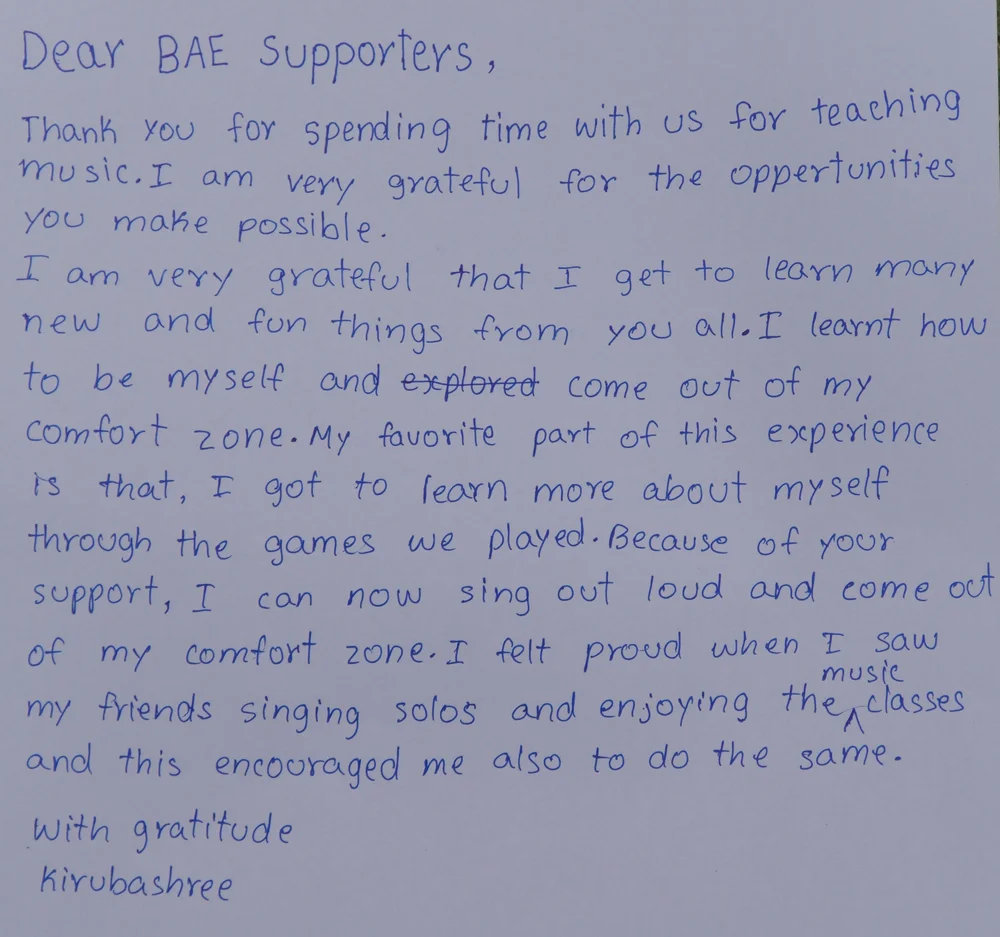 Dear BAE Supporters,
Thank you for spending time with us for teaching
music. I am very grateful for the oppertunities
you make possible.
I am very grateful that I get to learn many
new and fun things from you all. I learnt how
to be myself and explored come out of my
comfort zone. My favorite part of this experience
is that, I got to learn more about myself
through the games we played. Because of your
support, I can now sing out loud and come out
of my comfort zone. I felt proud when I saw
music
my friends singing solos and enjoying the classes
and this encouraged me also to do the same.
With gratitude
Kirubashree